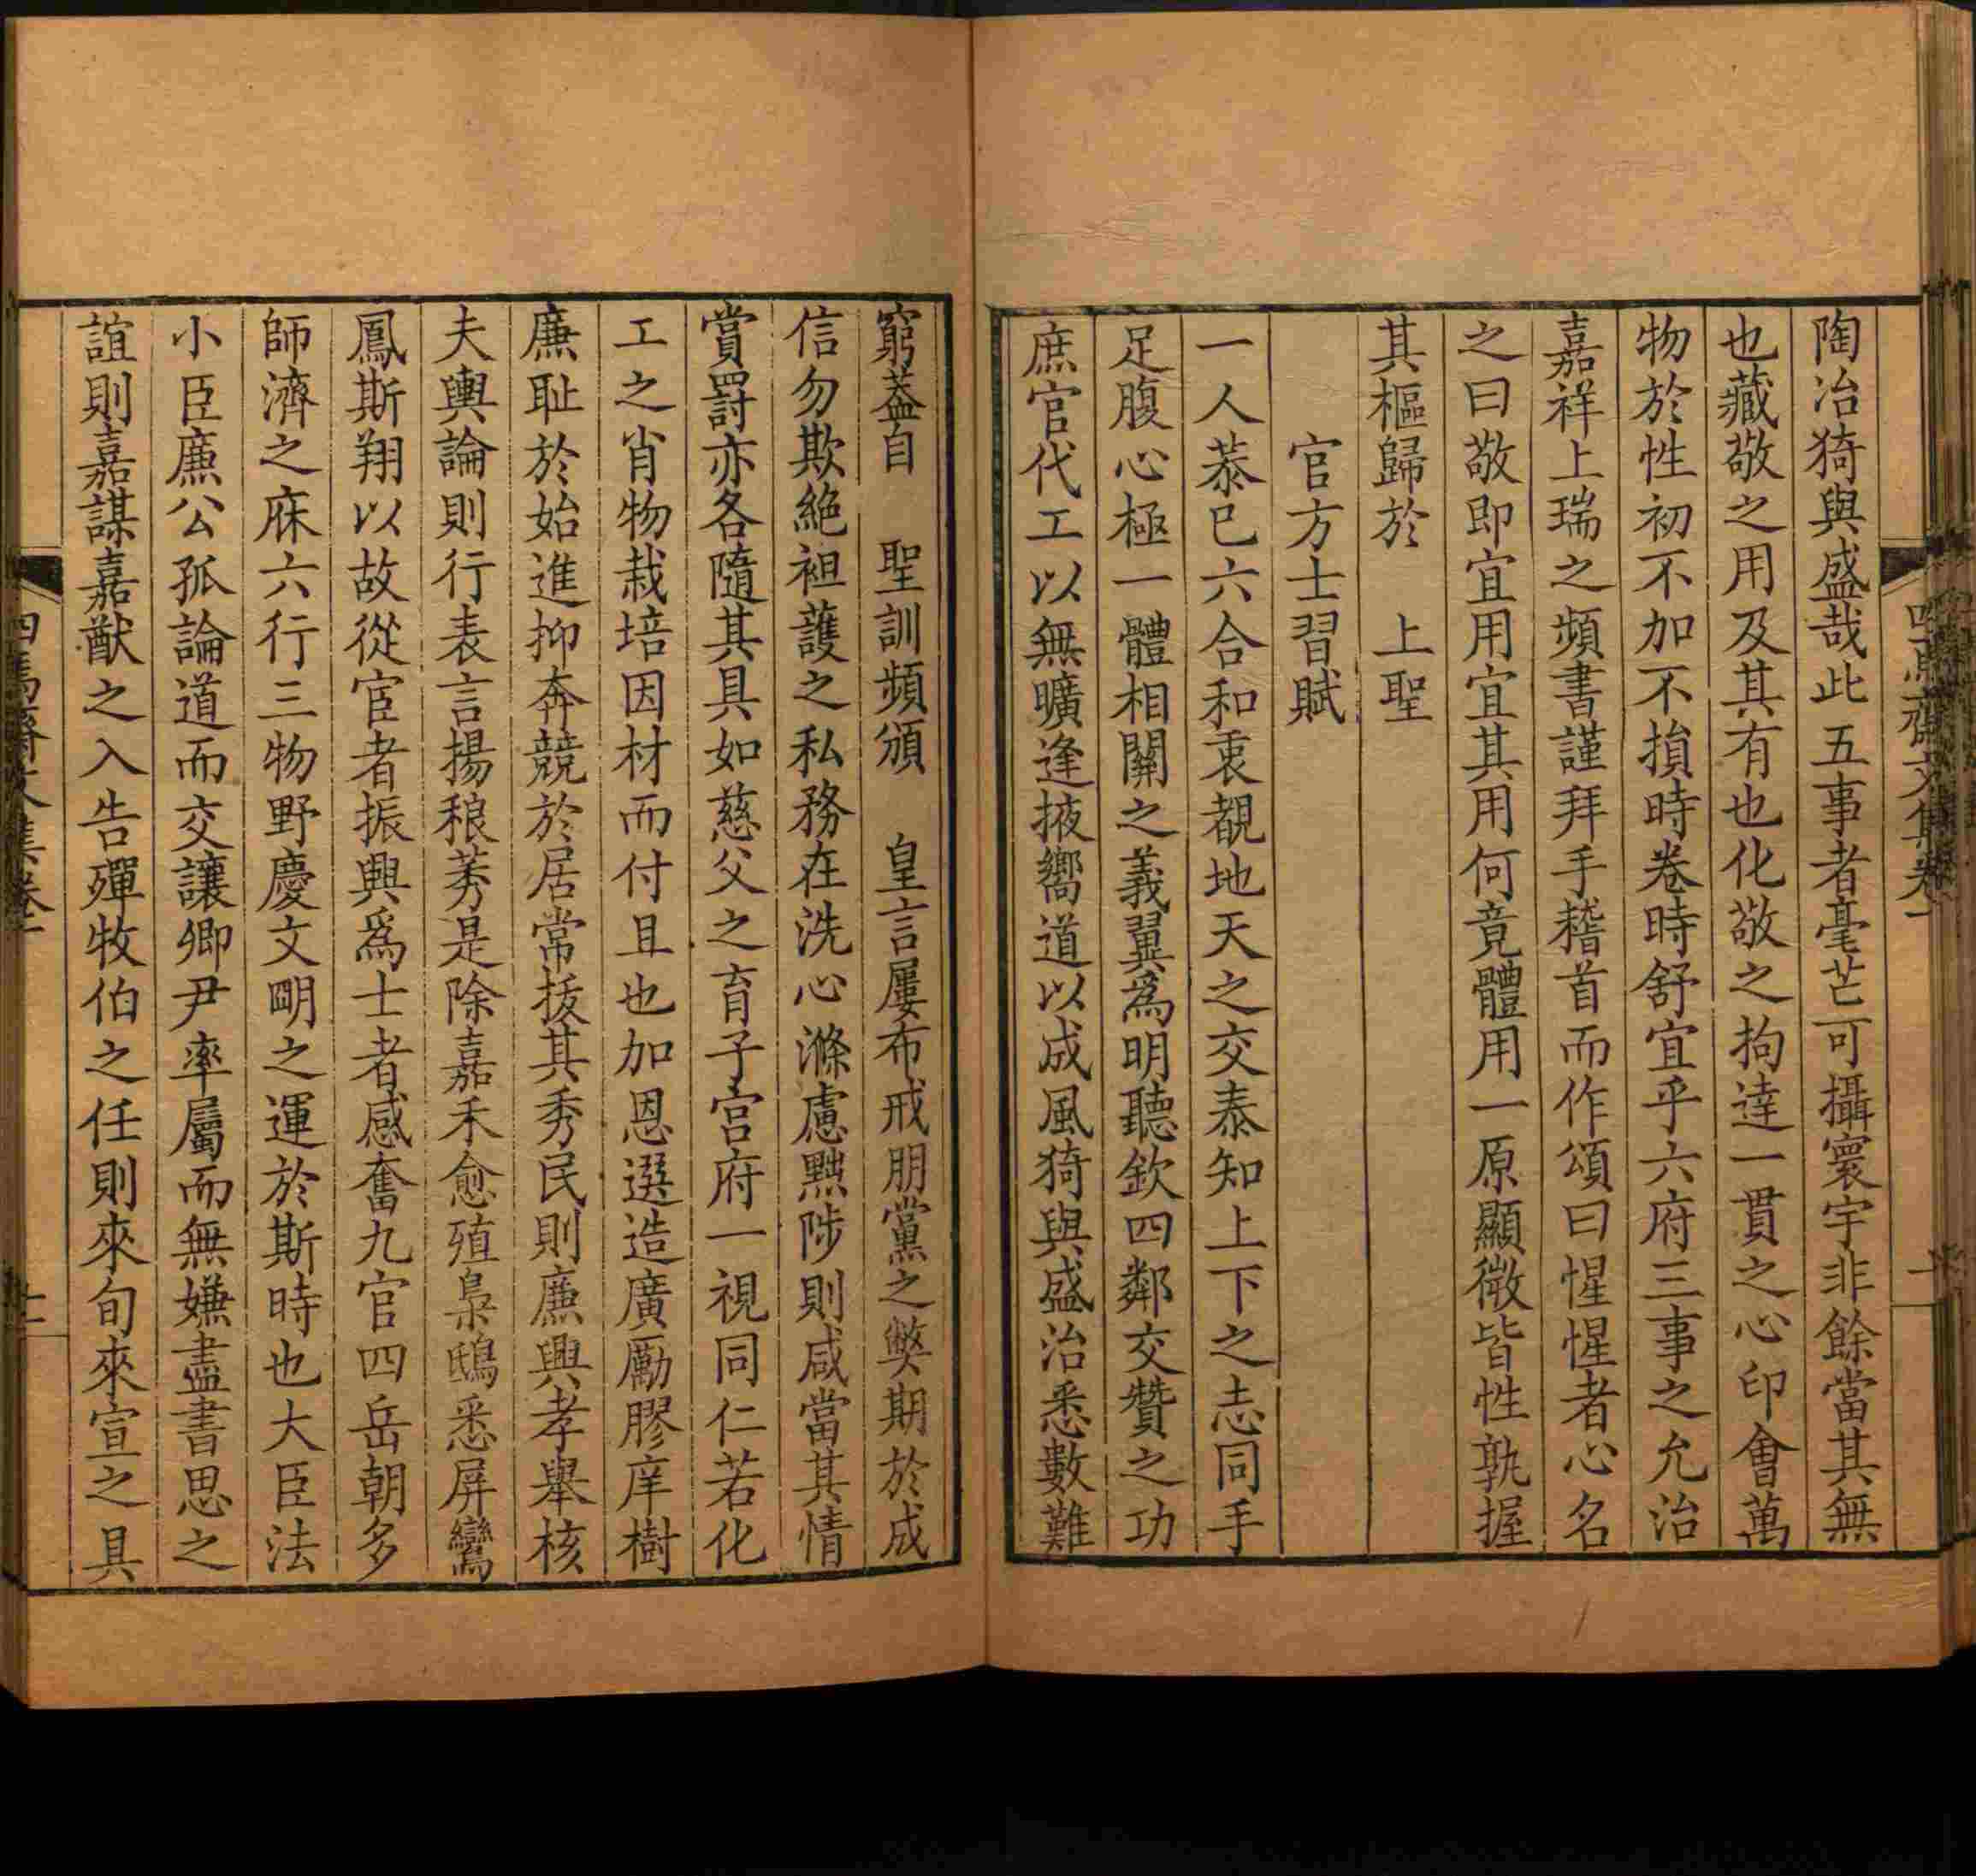 陶冶猗與盛哉此五事者毫芒可攝寰宇非餘當其無
也藏敬之用及其有也化敬之拘達一貫之心印會萬
物於性初不加不損時卷時舒宜乎六府三事之允治
嘉祥上瑞之頻書謹拜手稽首而作頌曰惺惺者心名
之曰敬即宜用宜其用何竟體用一原顯微皆性孰握
其樞歸於　上聖
官方士習賦
一人恭已六合和衷覩地天之交泰知上下之志同手
足腹心極一體相關之義翼為明聽欽四鄰交贊之功
庶官代工以無曠逢掖嚮道以成風猗與盛治悉數難
窮葢自　聖訓頻頒　皇言屢布戒朋黨之獘期於成
信勿欺絶袒護之私務在洗心滌慮黜陟則咸當其情
賞罰亦各隨其具如慈父之育子宮府一視同仁若化
工之肖物栽培因材而付且也加恩選造廣勵膠庠樹
廉耻於始進抑奔競於居常拔其秀民則廉興孝舉核
夫輿論則行表言揚稂莠是除嘉禾愈殖梟鴟悉屏鸞
鳳斯翔以故從宦者振興爲士者感奮九官四岳朝多
師濟之庥六行三物野慶文明之運於斯時也大臣法
小臣廉公孤論道而交讓卿尹率屬而無嫌盡書思之
誼則嘉謀嘉猷之入告殫牧伯之任則來旬來宣之具